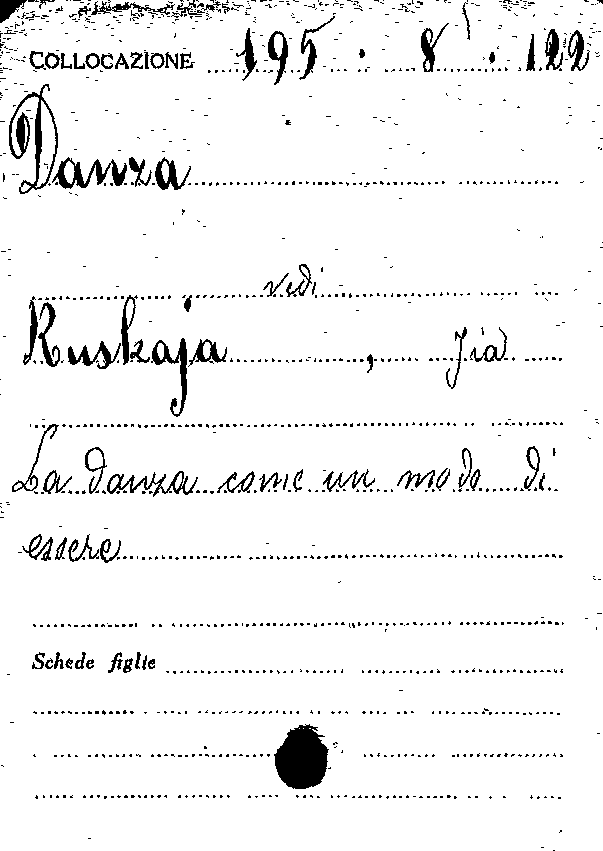 COLLOCAZIONE 195 . 8 . 122
Danza
vedi
Ruskaja , Jia
La danza come un modo di
essere
Schede figlie